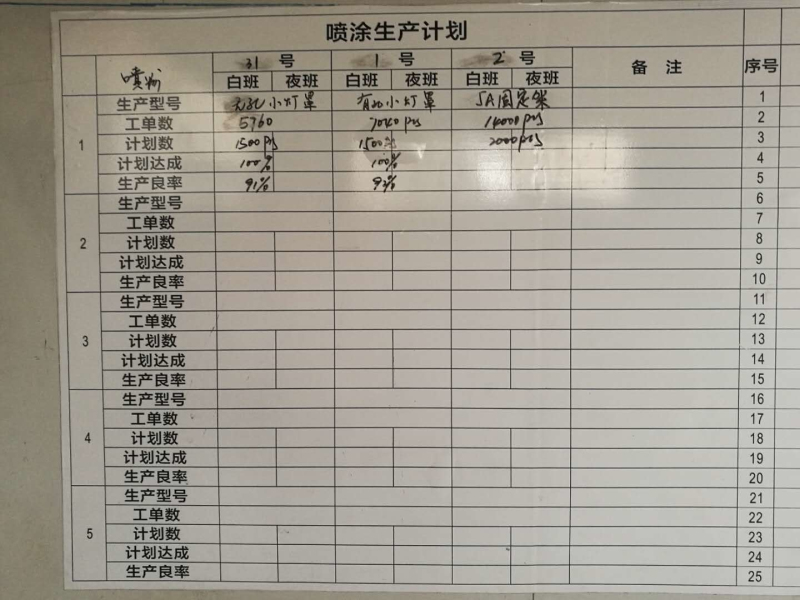 喷涂生产计划
喷粉 31 号 1 号 2 号 备 注 序号
白班 夜班 白班 夜班 白班 夜班
1 生产型号 无孔小灯罩 有孔小灯罩 5A固定架 1
工单数 5760 7040pcs 14000pcs 2
计划数 1500pcs 1500 2000pcs 3
计划达成 100% 100% 4
生产良率 91% 92% 5
2 生产型号 6
工单数 7
计划数 8
计划达成 9
生产良率 10
3 生产型号 11
工单数 12
计划数 13
计划达成 14
生产良率 15
4 生产型号 16
工单数 17
计划数 18
计划达成 19
生产良率 20
5 生产型号 21
工单数 22
计划数 23
计划达成 24
生产良率 25